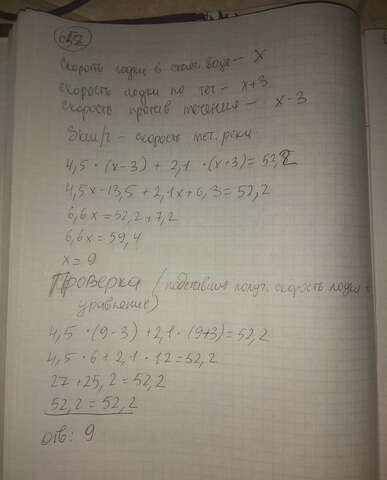 657
Скорость лодки в стоян. воде - x
скорость лодки по теч - x+3
скорость против течения - x-3
3км/ч - скорость теч. реки
4,5 · (x-3) + 2,1 · (x+3) = 52,2
4,5x - 13,5 + 2,1x + 6,3 = 52,2
6,6x = 52,2 + 7,2
6,6x = 59,4
x = 9
Проверка (подставим получ. скорость лодки в
уравнение)
4,5 · (9-3) + 2,1 · (9+3) = 52,2
4,5 · 6 + 2,1 · 12 = 52,2
27 + 25,2 = 52,2
52,2 = 52,2
отв: 9